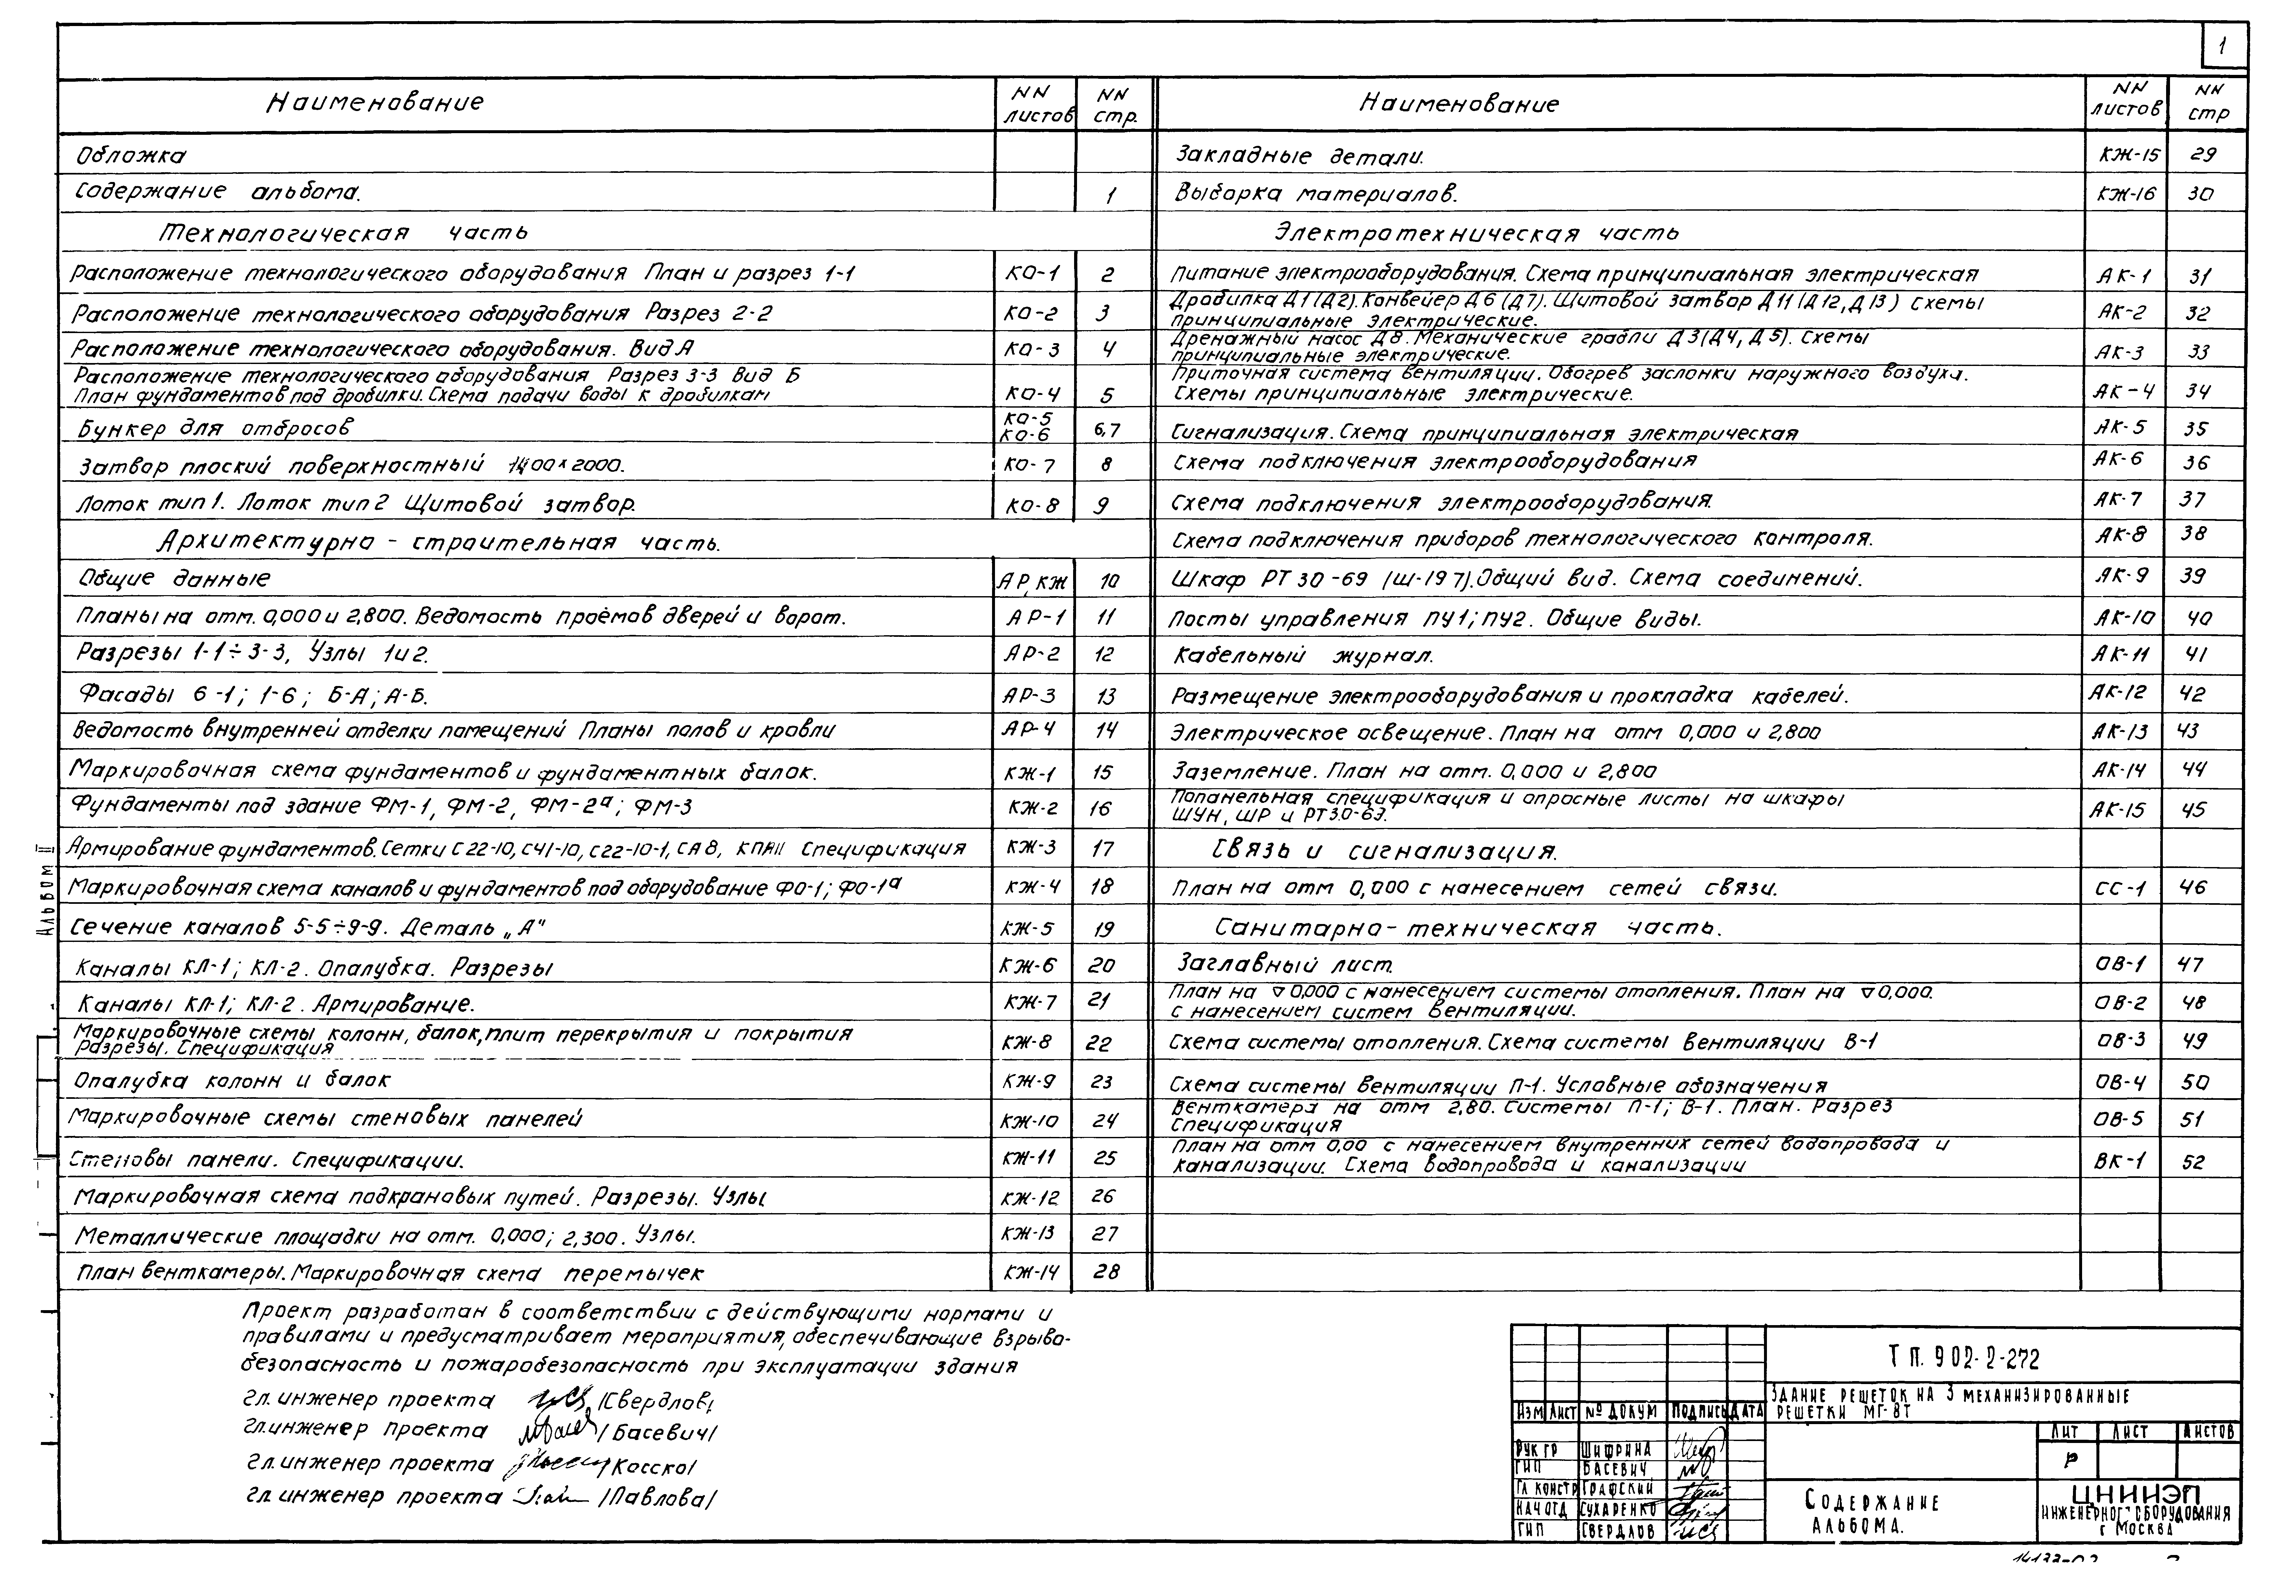 1
Наименование NN листов NN стр.
Обложка
Содержание альбома. 1
Технологическая часть
Расположение технологического оборудования План и разрез 1-1 КО-1 2
Расположение технологического оборудования Разрез 2-2 КО-2 3
Расположение технологического оборудования. Вид А КО-3 4
Расположение технологического оборудования Разрез 3-3 Вид Б
План фундаментов под дробилки. Схема подачи воды к дробилкам КО-4 5
Бункер для отбросов КО-5 КО-6 6,7
Затвор плоский поверхностный 1400×2000. КО-7 8
Лоток тип 1. Лоток тип 2 Щитовой затвор. КО-8 9
Архитектурно - строительная часть.
Общие данные АР, КЖ 10
Планы на отм. 0,000 и 2,800. Ведомость проёмов дверей и ворот. АР-1 11
Разрезы 1-1÷3-3, Узлы 1и2. АР-2 12
Фасады 6-1; 1-6; Б-А; А-Б. АР-3 13
Ведомость внутренней отделки помещений Планы полов и кровли АР-4 14
Маркировочная схема фундаментов и фундаментных балок. КЖ-1 15
Фундаменты под здание ФМ-1, ФМ-2, ФМ-2ª; ФМ-3 КЖ-2 16
Армирование фундаментов. Сетки С22-10, С41-10, С22-10-1, СА8, КПАII Спецификация КЖ-3 17
Маркировочная схема каналов и фундаментов под оборудование ФО-1; ФО-1ª КЖ-4 18
Сечение каналов 5-5÷9-9. Деталь „А" КЖ-5 19
Каналы КЛ-1; КЛ-2. Опалубка. Разрезы КЖ-6 20
Каналы КЛ-1; КЛ-2. Армирование. КЖ-7 21
Маркировочные схемы колонн, балок, плит перекрытия и покрытия
Разрезы. Спецификация КЖ-8 22
Опалубка колонн и балок КЖ-9 23
Маркировочные схемы стеновых панелей КЖ-10 24
Стеновы панели. Спецификации. КЖ-11 25
Маркировочная схема подкрановых путей. Разрезы. Узлы КЖ-12 26
Металлические площадки на отм. 0,000; 2,300. Узлы. КЖ-13 27
План венткамеры. Маркировочная схема перемычек КЖ-14 28
Наименование NN листов NN стр
Закладные детали. КЖ-15 29
Выборка материалов. КЖ-16 30
Электротехническая часть
Питание электрооборудования. Схема принципиальная электрическая АК-1 31
Дробилка Д1 (Д2). Конвейер Д6 (Д7). Щитовой затвор Д11 (Д12, Д13) Схемы
принципиальные электрические. АК-2 32
Дренажный насос Д8. Механические грабли Д3 (Д4, Д5). Схемы
принципиальные электрические. АК-3 33
Приточная система вентиляции. Обогрев заслонки наружного воздуха.
Схемы принципиальные электрические. АК-4 34
Сигнализация. Схема принципиальная электрическая АК-5 35
Схема подключения электрооборудования АК-6 36
Схема подключения электрооборудования. АК-7 37
Схема подключения приборов технологического контроля. АК-8 38
Шкаф РТ 30-69 (ш-197). Общий вид. Схема соединений. АК-9 39
Посты управления ПУ1; ПУ2. Общие виды. АК-10 40
Кабельный журнал. АК-11 41
Размещение электрооборудования и прокладка кабелей. АК-12 42
Электрическое освещение. План на отм 0,000 и 2,800 АК-13 43
Заземление. План на отм. 0,000 и 2,800 АК-14 44
Попанельная спецификация и опросные листы на шкафы
ШУН, ШР и РТ30-69. АК-15 45
Связь и сигнализация.
План на отм 0,000 с нанесением сетей связи. СС-1 46
Санитарно-техническая часть.
Заглавный лист. ОВ-1 47
План на ▽ 0,000 с нанесением системы отопления. План на ▽ 0,000.
с нанесением систем вентиляции. ОВ-2 48
Схема системы отопления. Схема системы вентиляции В-1 ОВ-3 49
Схема системы вентиляции П-1. Условные обозначения ОВ-4 50
Венткамера на отм 2,80. Системы П-1; В-1. План. Разрез
Спецификация ОВ-5 51
План на отм 0,00 с нанесением внутренних сетей водопровода и
канализации. Схема водопровода и канализации ВК-1 52
Альбом II
Проект разработан в соответствии с действующими нормами и
правилами и предусматривает мероприятия, обеспечивающие взрыво-
безопасность и пожаробезопасность при эксплуатации здания
гл. инженер проекта /Свердлов/
гл. инженер проекта /Басевич/
гл. инженер проекта /Косско/
гл. инженер проекта /Павлова/
Т П. 902-2-272
Здание решеток на 3 механизированные
решетки МГ-8Т
Изм Лист № докум Подпись Дата
Рук гр Шифрина
ГИП Басевич
Гл констр Графский
Нач отд Сухаренко
ГИП Свердлов
Лит Лист Листов
Р
Содержание
альбома.
ЦНИИЭП
инженерног оборудования
г Москва
14133-02